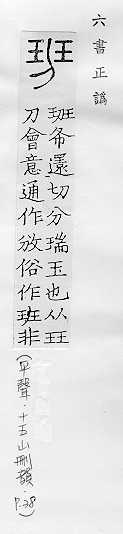 六書正譌
班
班布還切分瑞玉也从玨
刀會意通作攽俗作班非
(平聲·十五山刪韻·P.28)